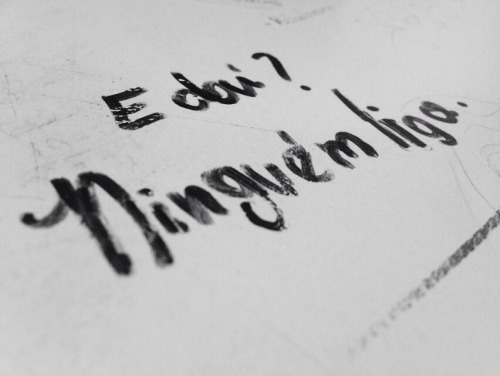 E daí?
Ninguém liga.